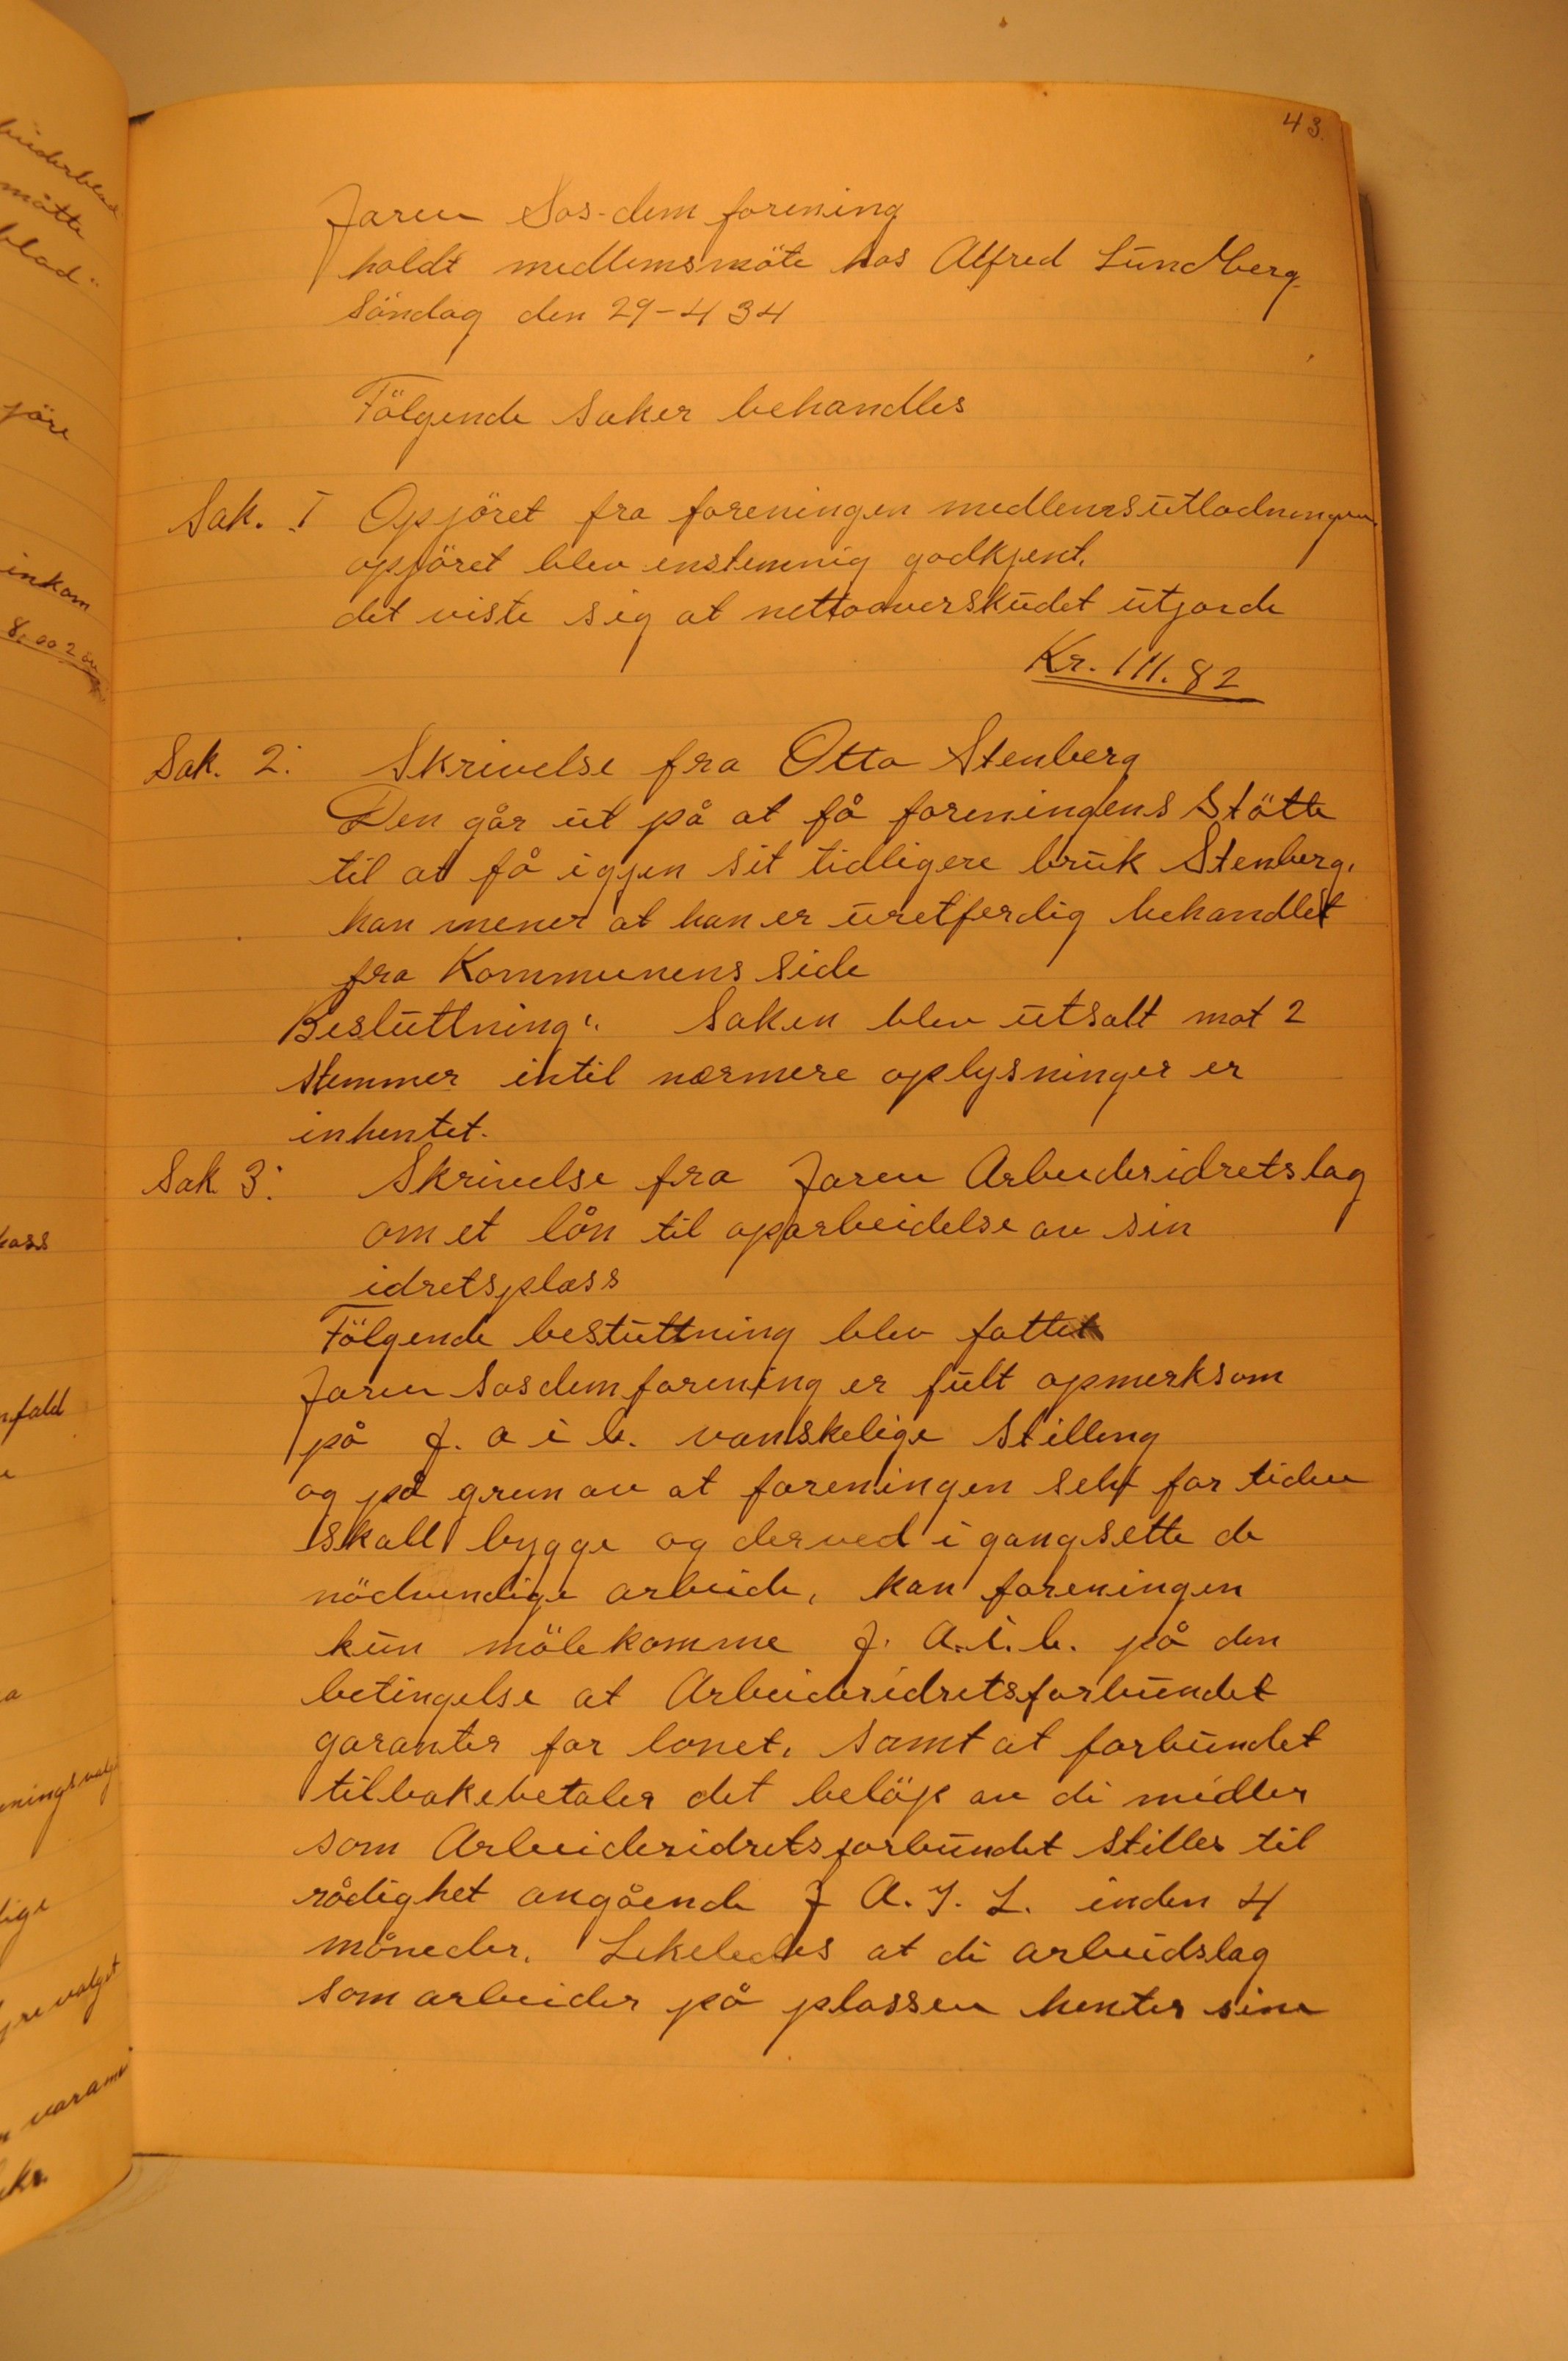 43.
Jaren Sos-dem forening
holdt medlemsmöte hos Alfred Lundberg
Söndag den 29-4 34
Fölgende saker behandles
Sak. I Opjöret fra foreningen medlemsutlodningen.
opjöret blev enstemnig godkjent.
det viste sig at nettooverskudet utjorde
Kr. 111.82
Sak. 2: Skrivelse fra Otto Stenberg
Den går ut på at få foreningens Stötte
til at få igjen sit tidligere bruk Stenberg.
han mener at han er uretferdig behandlet
fra Kommunens side
Besluttning: Saken blev utsatt mot 2
stemmer intil nærmere oplysninger er
inhentet.
Sak 3: Skrivelse fra Jaren Arbeideridretslag
om et lån til oparbeidelse av sin
idretsplass
Fölgende besluttning blev fattet
Jaren Sosdemforening er fult opmerksom
på J. a i l. vanskelige Stilling
og på grun av at foreningen selv for tiden
skall bygge og derved i gangsette de
nödvendige arbeide, kan foreningen
kun möte komme J. A.i.l. på den
betingelse at Arbeideridretsforbundet
garanter for lonet, samt at forbundet
tilbakebetaler det belöp av di midler
som Arbeideridretsforbundet stilles til
rådighet angående J A. I. L. inden 4
måneder. Lekeledes at di arbeidslag
som arbeider på plassen henter sine
mötte
blad"
jöre
inkom
8.00 2
fald
varam